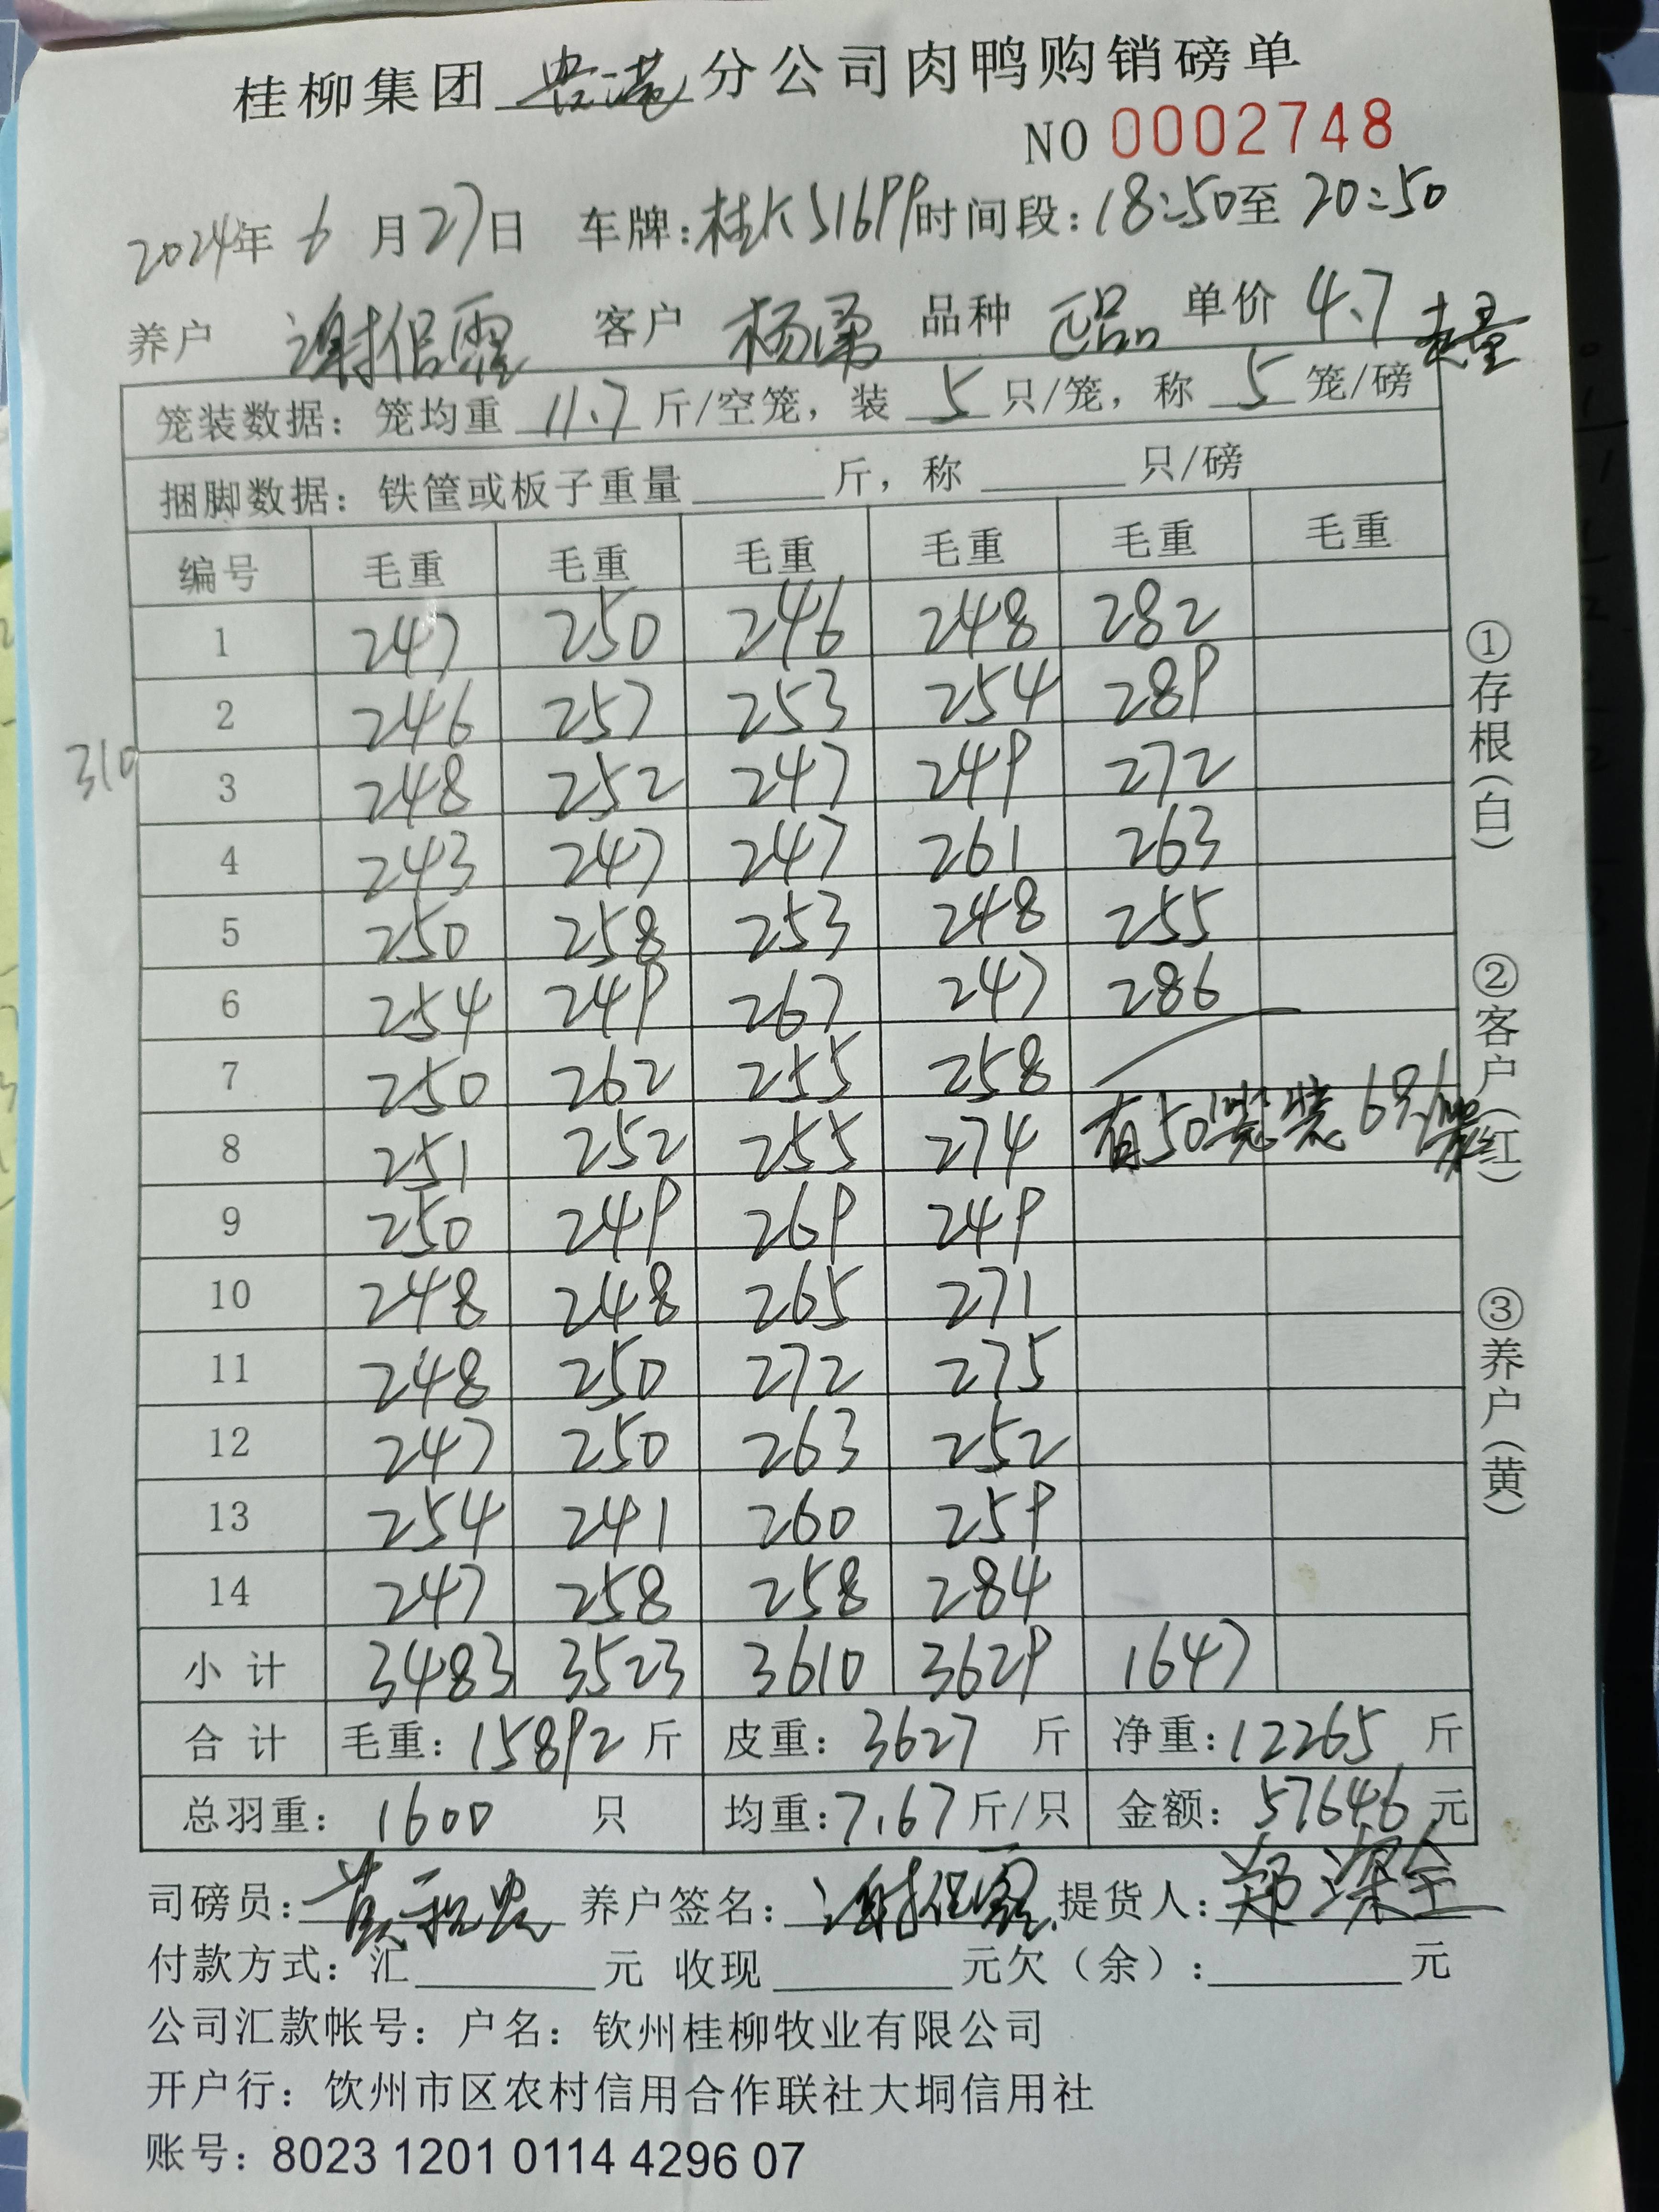 桂柳集团 贵港 分公司肉鸭购销磅单
NO 0002748
2024年 6 月 27 日 车牌:桂K51699 时间段:18:50至 20:50
养户 谢侣霞 客户 杨勇 品种 正品 单价 4.7
笼装数据: 笼均重 11.7 斤/空笼, 装 5 只/笼, 称 5 笼/磅
捆脚数据: 铁筐或板子重量 斤, 称 只/磅
编号 毛重 毛重 毛重 毛重 毛重 毛重
1 247 250 246 248 282
2 246 257 253 254 289
310
3 248 252 247 249 272
4 243 247 247 261 263
5 250 258 253 248 255
6 254 249 267 247 286
7 250 262 255 258
8 251 252 255 274 有50笼装6只/笼
9 250 249 269 249
10 248 248 265 271
11 248 250 272 275
12 247 250 263 252
13 254 241 260 259
14 247 258 258 284
小计 3483 3523 3610 3629 1647
合计 毛重: 15892 斤 皮重: 3627 斤 净重: 12265 斤
总羽重: 1600 只 均重: 7.67 斤/只 金额: 57646 元
司磅员: 养户签名: 谢侣霞 提货人: 郑深全
付款方式: 汇 元 收现 元欠(余): 元
公司汇款帐号: 户名: 钦州桂柳牧业有限公司
开户行: 饮州市区农村信用合作联社大垌信用社
账号: 8023 1201 0114 4296 07
①存根(白)
②客户(红)
③养户(黄)